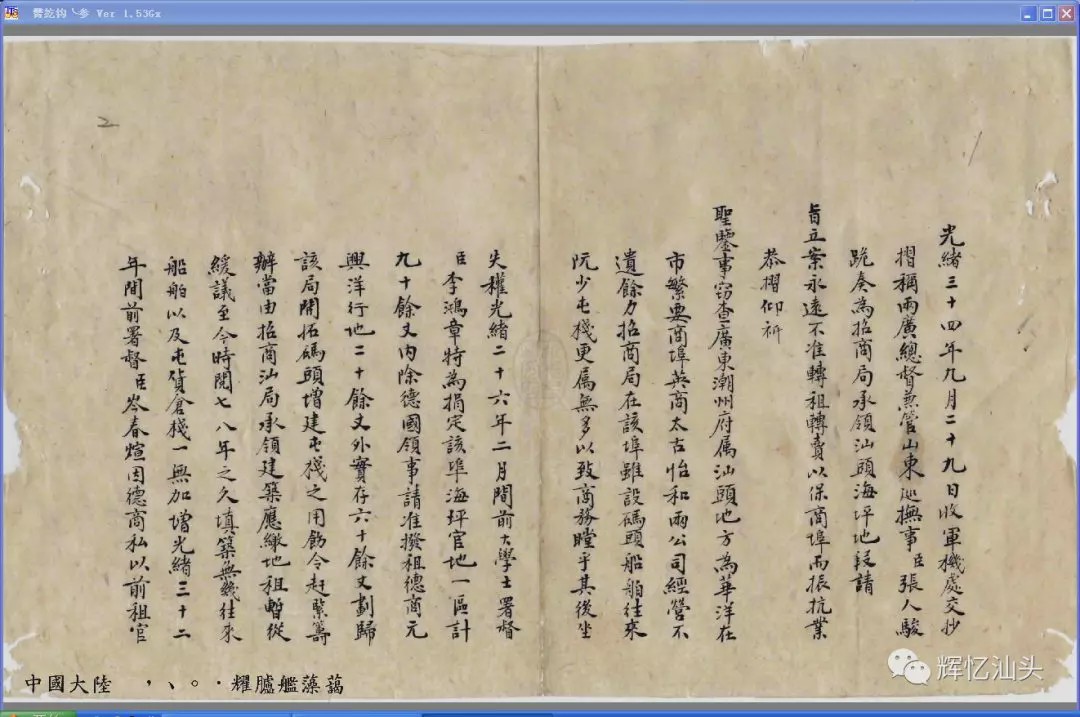 Ver 1.53Gx
2
光緒三十四年九月二十九日收軍機處交抄
摺稱兩廣總督兼管山東巡撫事臣張人駿
跪奏為招商局承領汕頭海坪地段請
旨立案永遠不准轉租轉賣以保商埠而振抗業
恭摺仰祈
聖鑒事竊查廣東潮州府属汕頭地方為華洋在
市繁要商埠英商太古怡和兩公司經營不
遺餘力招商局在該埠雖設碼頭船舶往來
阮少屯棧更属無多以致商務瞠乎其後坐
失權光緒二十六年二月間前大學士署督
臣李鴻章特為捐定該埠海坪官地一區計
九十餘丈内除德國領事請准撥租德商元
興洋行地二十餘丈外實存六十餘丈劃歸
該局開拓碼頭增建屯棧之用飭令赶緊籌
辦當由招商汕局承領建築應繳地租暫從
緩議至今時閱七八年之久填築無幾往來
船舶以及屯貨倉棧一無加增光緒三十二
年間前署督臣岑春煊因德商私以前租官
中國大陸 ，、。·耀臚艦藻藹
辉忆汕头